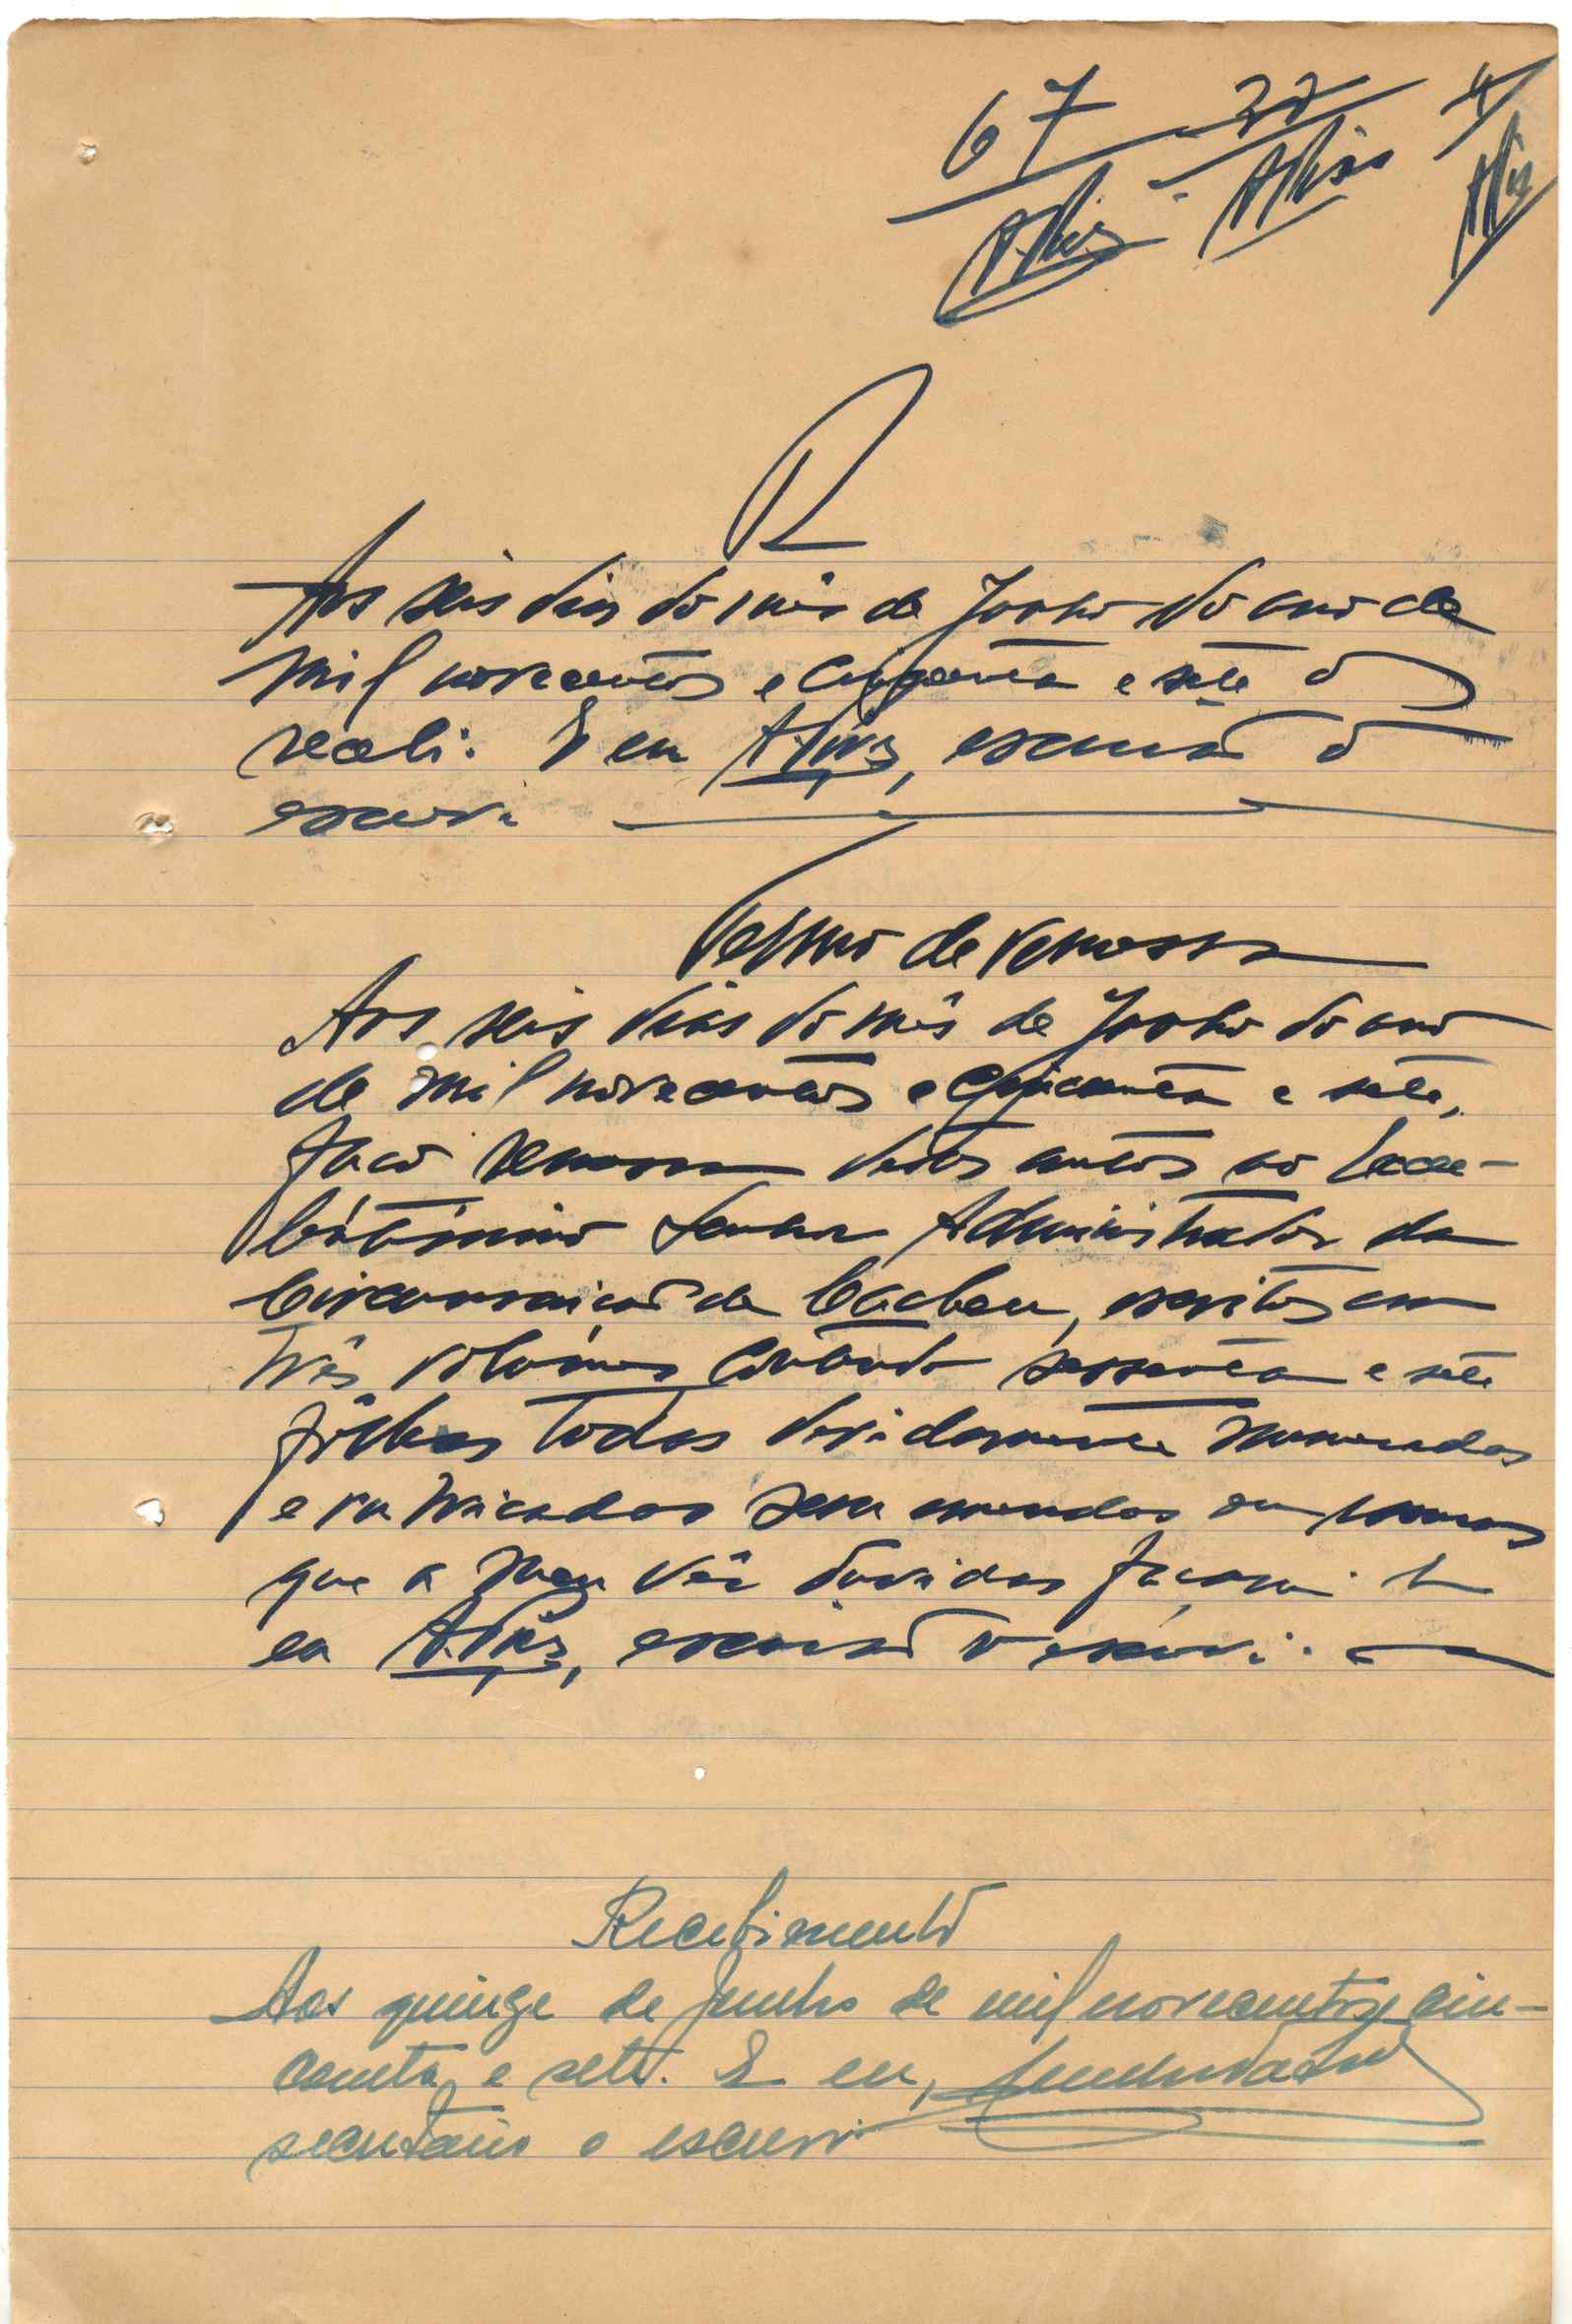 67 22 4
R
Aos seis dias do mês de Junho do ano de
mil novecentos e cinquenta e sete o
recebi. E eu A. Pires, escrivão o
escrevi
Termo de remessa
Aos seis dias do mês de Junho do ano
de mil novecentos e cinquenta e sete,
faço remessa destes autos ao
Senhor Administrador da
Circunscrição de Cacheu, escritos em
três volumes contendo sessenta e sete
fôlhas todas devidamente numeradas
e rubricadas sem emendas ou
que a meu vêr duvidas façam. E
eu A. Pires, escrivão o escrevi.
Recebimento
Aos quinze de Junho de mil novecentos e cin-
coenta e sete. E eu,
secretário o escrevi